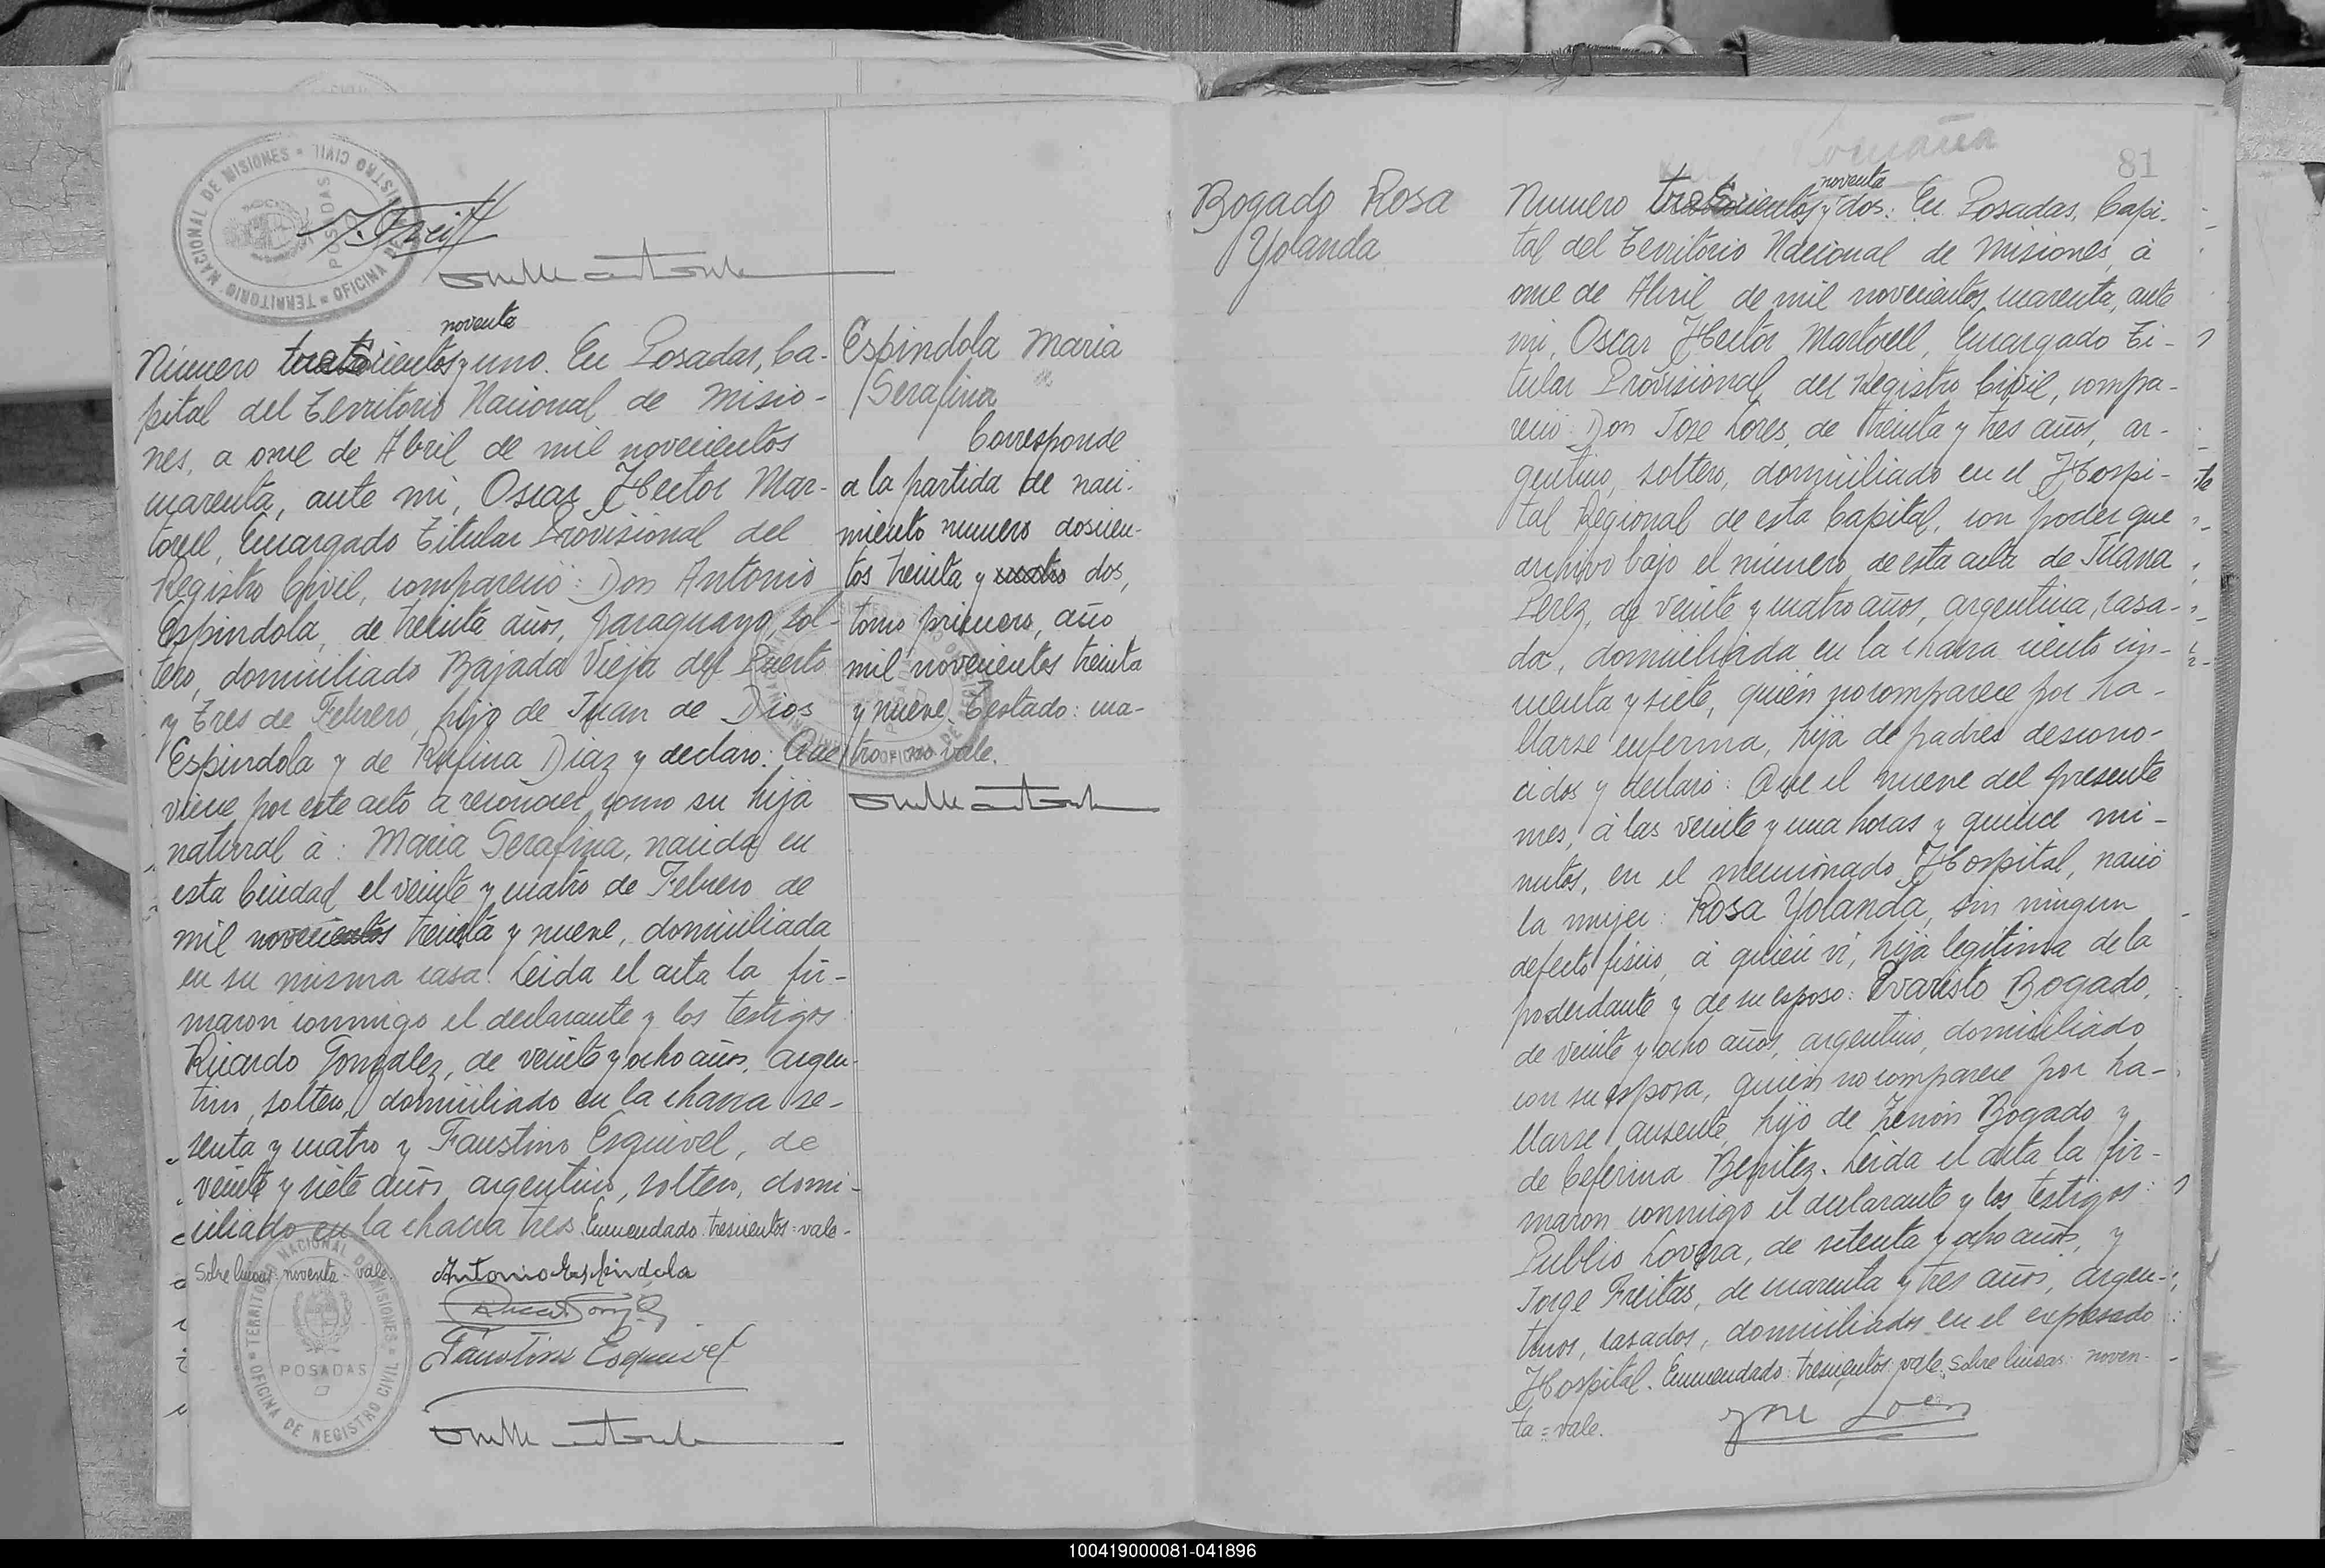 TERRITORIO NACIONAL DE MISIONES = OFICINA DE REGISTRO CIVIL
POSADAS
noventa
Número trescientos y uno. En Posadas, Ca-
pital del Territorio Nacional de Misio-
nes, a once de Abril de mil novecientos
cuarenta, ante mi, Oscar Hector Mar-
torell, Encargado Titular Provisional del
Registro Civil, compareció: Don Antonio
Espindola, de treinta años, paraguayo, sol-
tero, domiciliado Bajada Vieja del Puerto
y Tres de Febrero, hijo de Juan de Dios
Espindola y de Rufina Diaz y declaro: Que
viene por este acto a reconocer como su hija
natural à: Maria Serafina, nacida en
esta Ciudad el veinte y cuatro de Febrero de
mil novecientos treinta y nueve, domiciliada
en su misma casa. Leida el acta la fir-
maron conmigo el declarante y los testigos
Ricardo Gonzalez, de veinte y ocho años, argen-
tino, soltero, domiciliado en la chacra se-
senta y cuatro y Faustino Esquivel, de
veinte y siete años, argentino, soltero, domi-
ciliado en la chacra tres. Enmendado: trescientos: vale-
Sobre lineas: noventa - vale.
Antonio Espindola
Faustino Esquivel
TERRITORIO NACIONAL DE MISIONES = OFICINA DE REGISTRO CIVIL
POSADAS
Espindola Maria
Serafina
Corresponde
a la partida de naci-
miento numero doscien-
tos treinta y cuatro dos,
tomo primero, año
mil novecientos treinta
y nueve. Testado: cua-
tro no vale.
Bogado Rosa
Yolanda
81
noventa
Numero trescientos y dos: En Posadas, Capi-
tal del Territorio Nacional de Misiones, à
once de Abril de mil novecientos cuarenta, ante
mi, Oscar Hector Martorell, Encargado Ti-
tular Provisional del Registro Civil, compa-
reció: Don Jose Lores, de treinta y tres años, ar-
gentino, soltero, domiciliado en el Hospi-
tal Regional de esta Capital, con poder que
archivo bajo el número de esta acta de Juana
Perez, de veinte y cuatro años, argentina, casa-
da, domiciliada en la chacra ciento cin-
cuenta y siete, quién no comparece por ha-
llarse enferma, hija de padres descono-
cidos y declaró: Que el nueve del presente
mes, à las veinte y una horas y quince mi-
nutos, en el mencionado Hospital, nació
la mujer: Rosa Yolanda, sin ningun
defecto fisico, à quién vi, hija legitima de la
poderdante y de su esposo: Evaristo Bogado,
de veinte y ocho años, argentino, domiciliado
con su esposa, quién no comparece por ha-
llarse ausente, hijo de Zenón Bogado y
de Ceferina Benitez. Leida el acta la fir-
maron conmigo el declarante y los testigos:
Publio Lovera, de setenta y ocho años, y
Jorge Freitas, de cuarenta y tres años, argen-
tinos, casados, domiciliados en el expresado
Hospital. Enmendado: trescientos: vale. Sobre lineas: noven-
ta = vale.
Jose Lores
100419000081-041896